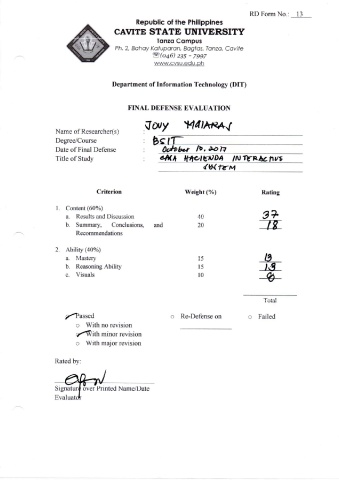 RD Form No.: 13
Republic of the Philippines
CAVITE STATE UNIVERSITY
Tanza Campus
Ph. 2, Bahay Katuparan, Bagtas, Tanza, Cavite
(046) 235 - 7997
www.cvsu.edu.ph
Department of Information Technology (DIT)
FINAL DEFENSE EVALUATION
Name of Researcher(s) : JOVY
Degree/Course : BSIT
Date of Final Defense : October 10, 2017
Title of Study : HACIENDA INTERACTIVE
SYSTEM
Criterion Weight (%) Rating
1. Content (60%)
a. Results and Discussion 40 37
b. Summary, Conclusions, and 20 18
Recommendations
2. Ability (40%)
a. Mastery 15 13
b. Reasoning Ability 15 13
c. Visuals 10 8
Total
Passed o Re-Defense on o Failed
o With no revision
With minor revision
o With major revision
Rated by:
Signature over Printed Name/Date
Evaluator